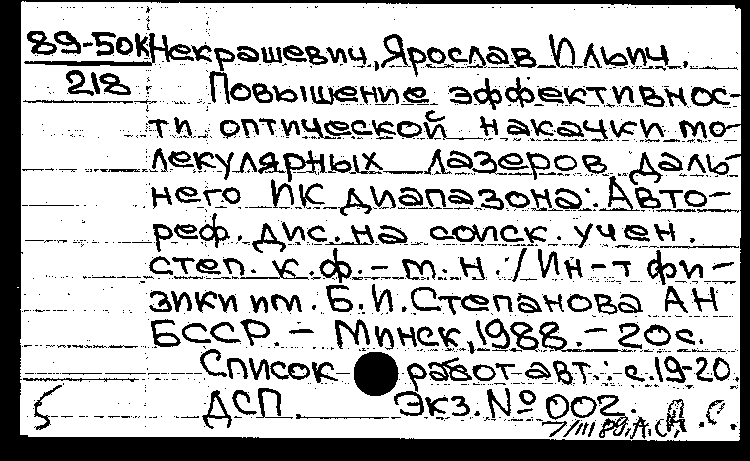 89-50К Некрашевич, Ярослав Ильич.
218 Повышение эффективнос-
ти оптической накачки мо-
лекулярных лазеров даль-
него ИК диапазона: Авто-
реф. дис. на соиск. учен.
степ. к.ф.-м.н. / Ин-т фи-
зики им. Б.И.Степанова АН
БССР. - Минск, 1988. - 20с.
Список работ авт.: с.19-20.
5 ДСП. Экз. № 002.
7/III 89.